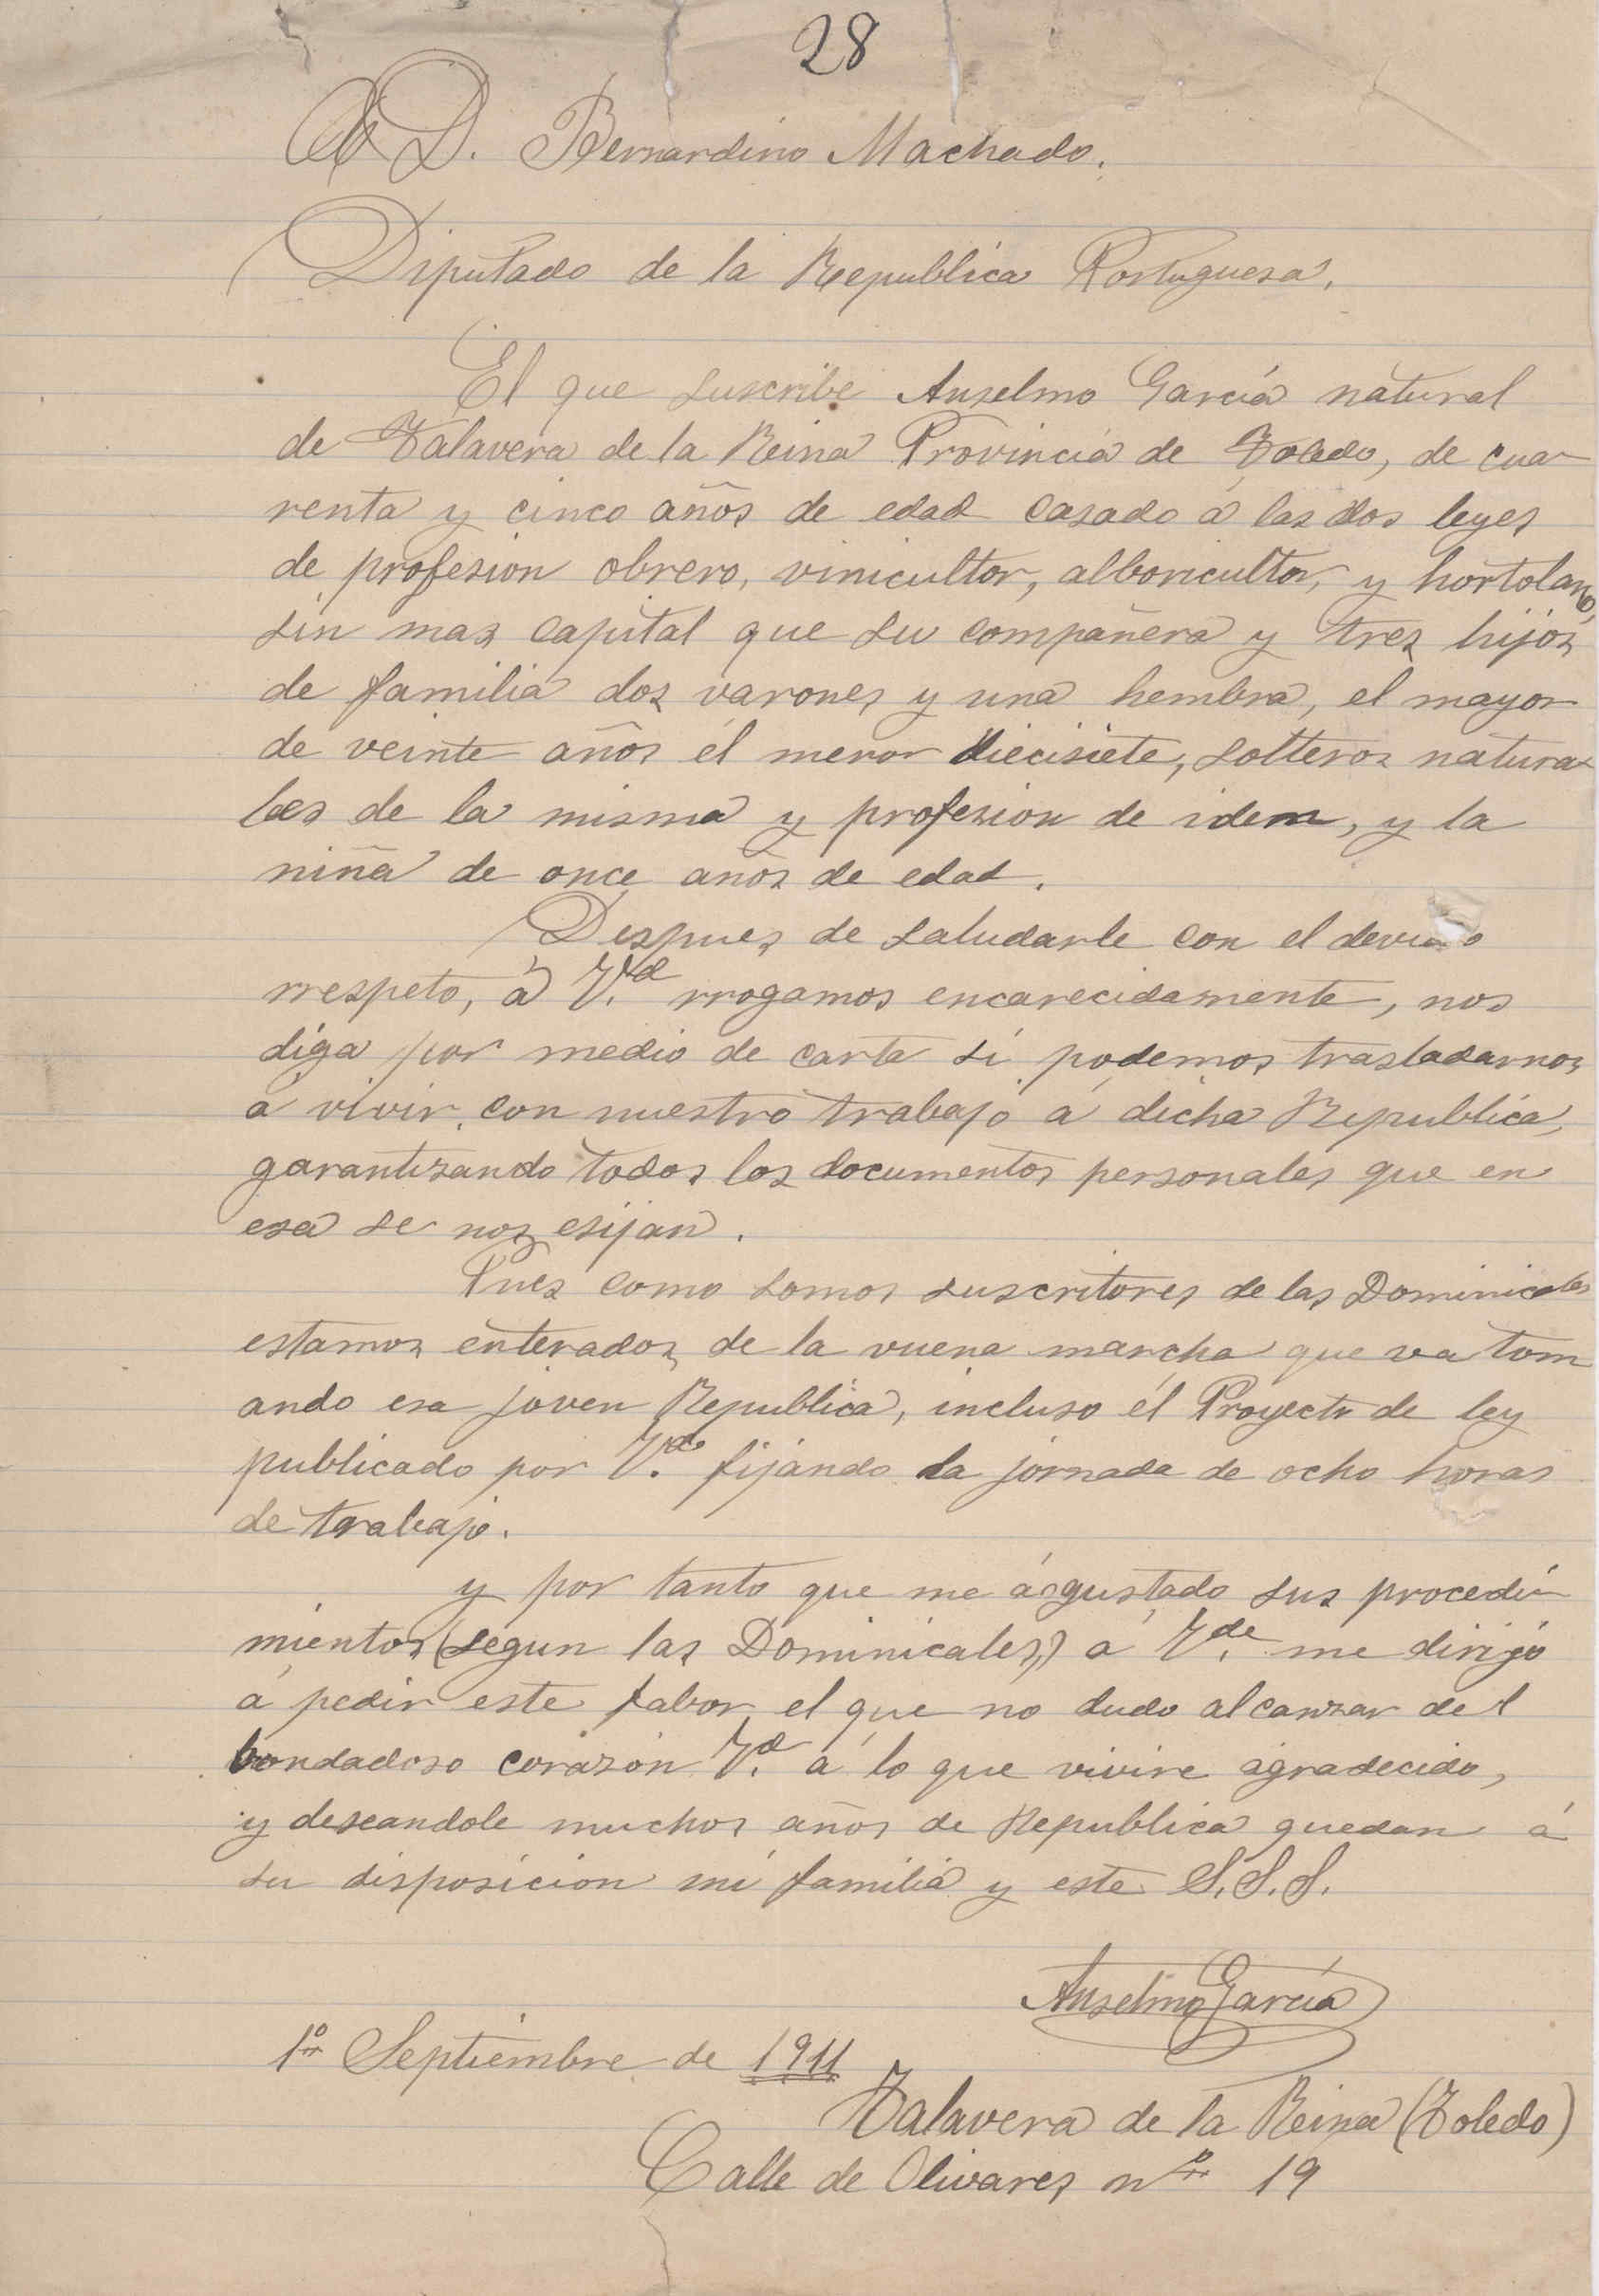 28
A D. Bernardino Machado.
Diputado de la Reepublica Portuguesa.
El que suscribe Anselmo García natural
de Talavera de la Reina Provincia de Toledo, de cua-
renta y cinco años de edad casado á las dos leyes
de profesion obrero, vinicultor, alboricultor, y hortolano,
sin mas capital que su compañera y tres hijos
de familia dos varones y una hembra, el mayor
de veinte años él menor diecisiete, solteros natura-
les de la misma y profesion de idem, y la
niña de once años de edad.
Despues de saludarle con el devido
rrespeto, á V.d rrogamos encarecidamente, nos
diga por medio de carta si podemos trasladarnos
á vivir, con nuestro trabajo á dicha Republica,
garantizando todos los documentos personales que en
esa se nos esijan.
Pues como somos suscritores de las Dominicales
estamos enterados de la vuena marcha que va tom
ando esa joven Republica, incluso él Proyecto de ley
publicado por V.d fijando la jornada de ocho horas
de trabajo.
y por tanto que me á gustado sus procedi-
mientos (segun las Dominicales) á V.de me dirijo
á pedir este fabor el que no dudo alcanzar del
bondadoso corazón V.d á lo que vivire agradecido,
y deseandole muchos años de Republica quedan á
su disposicion mi familia y este S.S.S.
Anselmo García
1º Septiembre de 1911
Talavera de la Reina (Toledo)
Calle de Olivares nº 19